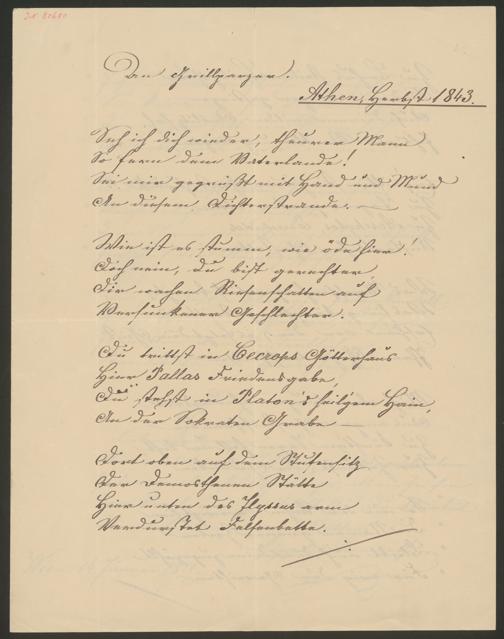 An Grillparzer.
Athen, Herbst 1843.
Seh ich dich wieder, theurer Mann
So fern dem Vaterlande!
Sei mir gegrüßt mit Hand und Mund
An diesem Dichterstrande. —
Wie ist es stumm, wie öde hier!
Doch nein, du bist gerechter,
Dir wachen Riesenschatten auf
Versunkener Geschlechter.
Du trittst in Cecrops Götterhaus
Hier Pallas Friedensgabe,
Du stehst in Platon's heil'gem Hain,
An der Sokraten Grabe —
Dort oben auf dem
Der Demosthenen Stätte
Hier unten des Ilyssus arm
Verdurstet Felsenbette.